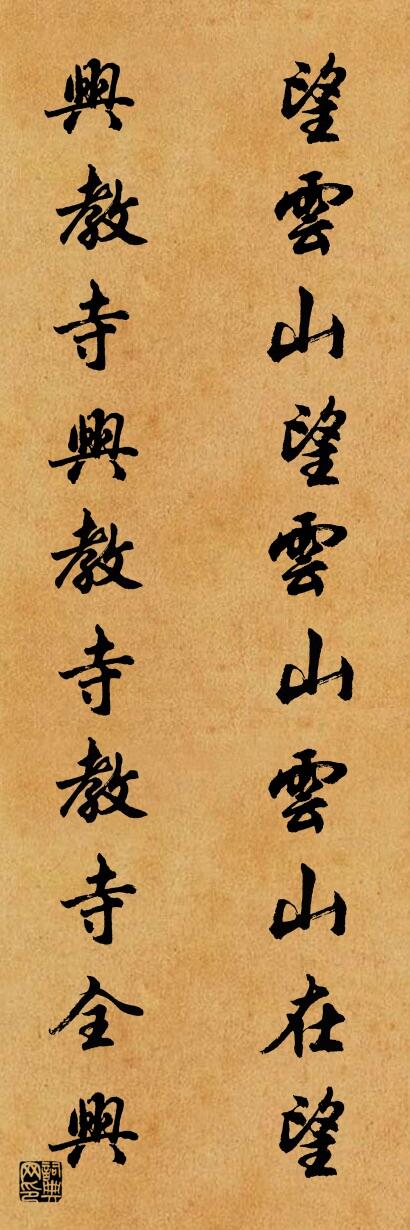 望雲山望雲山雲山在望
興教寺興教寺教寺全興
詞典网印